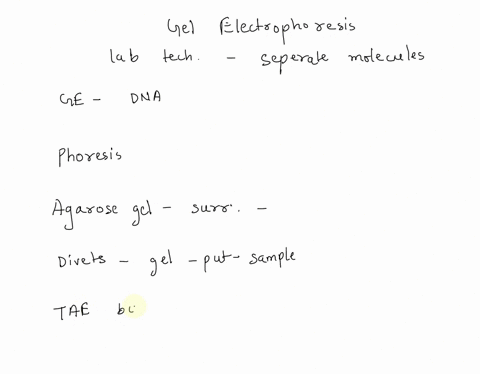 Gel Electrophoresis
lab tech. - seperate molecules
GE - DNA
Phoresis
Agarose gel - surr. -
Divets - gel - put - sample
TAE